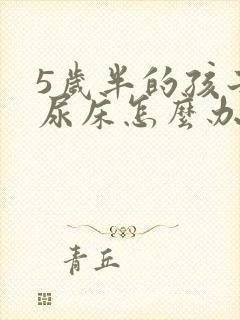 5歲半的孩子
尿床怎麼办
青丘